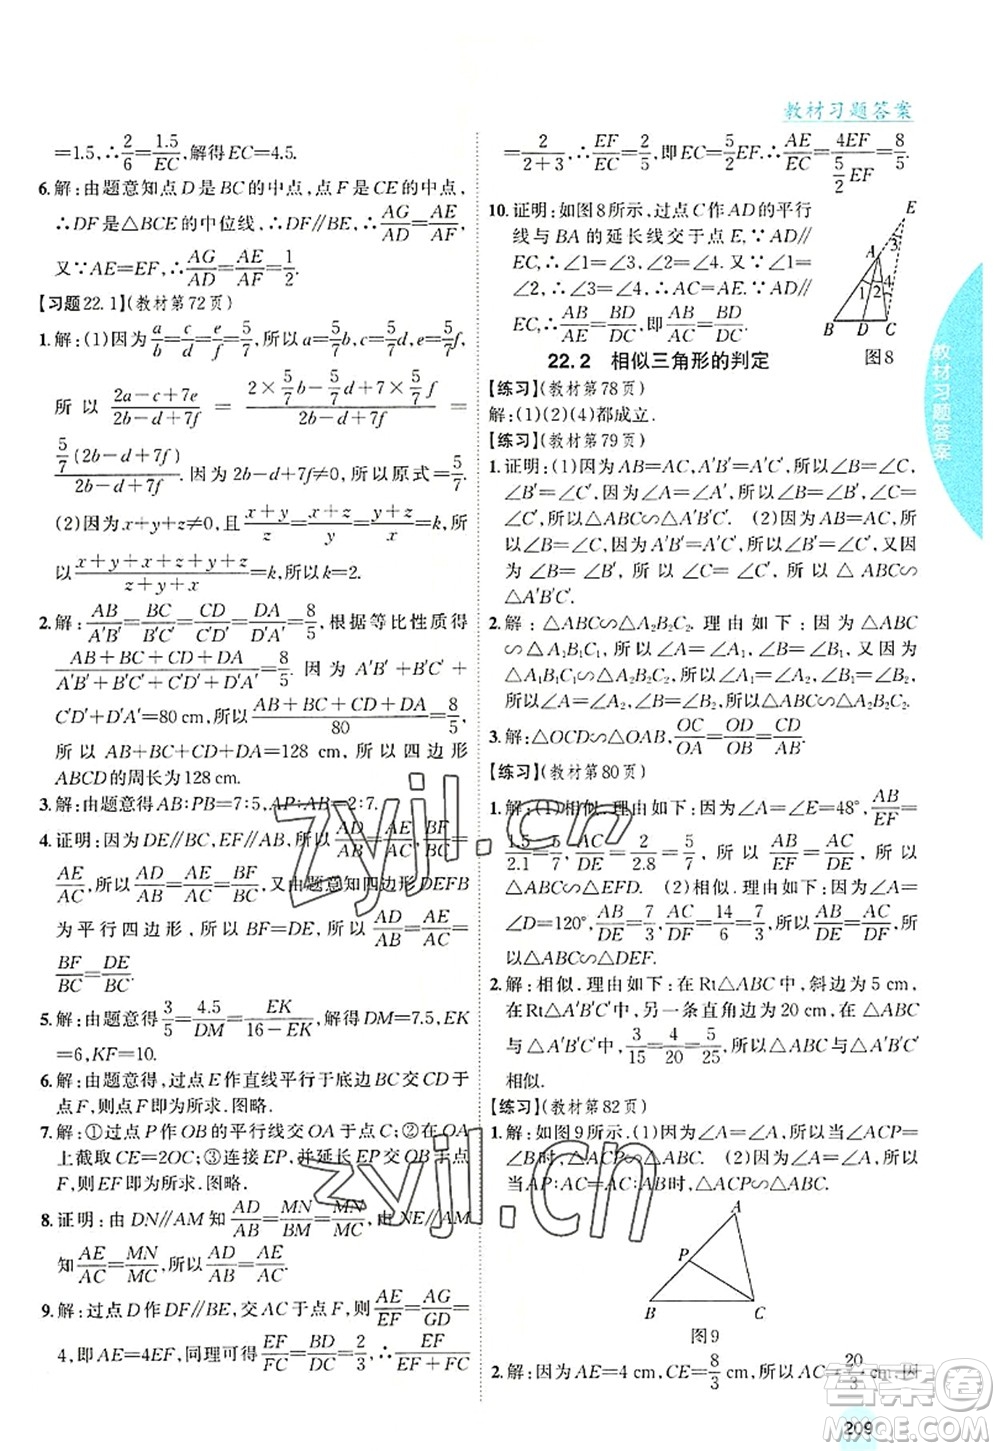 教材习题答案
=1.5,∴2/6=1.5/EC,解得EC=4.5.
6.解:由题意知点D是BC的中点,点F是CE的中点,
∴DF是△BCE的中位线,∴DF∥BE,∴AG/AD=AE/AF,
又∵AE=EF,∴AG/AD=AE/AF=1/2.
【习题22.1】(教材第72页)
1.解:(1)因为a/b=c/d=e/f=5/7,所以a=5/7b,c=5/7d,e=5/7f,
所以(2a-c+7e)/(2b-d+7f)=(2×5/7b-5/7d+7×5/7f)/(2b-d+7f)=
5/7(2b-d+7f)/(2b-d+7f).因为2b-d+7f≠0,所以原式=5/7.
(2)因为x+y+z≠0,且(x+y)/z=(x+z)/y=(y+z)/x=k,所
以(x+y+x+z+y+z)/(z+y+x)=k,所以k=2.
2.解:AB/A′B′=BC/B′C′=CD/C′D′=DA/D′A′=8/5,根据等比性质得
(AB+BC+CD+DA)/(A′B′+B′C′+C′D′+D′A′)=8/5.因为A′B′+B′C′+
C′D′+D′A′=80 cm,所以(AB+BC+CD+DA)/80=8/5,
所以AB+BC+CD+DA=128 cm,所以四边形
ABCD的周长为128 cm.
3.解:由题意得AB∶PB=7∶5,AP∶AB=2∶7.
4.证明:因为DE∥BC,EF∥AB,所以AD/AB=AE/AC,BF/BC=
AE/AC,所以AD/AB=AE/AC=BF/BC,又由题意知四边形DEFB
为平行四边形,所以BF=DE,所以AD/AB=AE/AC=
BF/BC=DE/BC.
5.解:由题意得3/5=4.5/DM=EK/(16-EK),解得DM=7.5,EK
=6,KF=10.
6.解:由题意得,过点E作直线平行于底边BC交CD于
点F,则点F即为所求.图略.
7.解:①过点P作OB的平行线交OA于点C;②在OA
上截取CE=2OC;③连接EP,并延长EP交OB于点
F,则EF即为所求.图略.
8.证明:由DN∥AM知AD/AB=MN/MB,由NE∥AM
知AE/AC=MN/MC,所以AD/AB=AE/AC=MN/MB=MN/MC.
9.解:过点D作DF∥BE,交AC于点F,则AE/EF=AG/GD=
4,即AE=4EF,同理可得EF/FC=BD/DC=2/3,∴EF/(EF+FC)
=2/(2+3)=EF/EC,即EC=5/2EF,∴AE/EC=4EF/(5/2EF)=8/5.
10.证明:如图8所示,过点C作AD的平行
线与BA的延长线交于点E,∵AD∥
CE,∴∠1=∠3,∠2=∠4,∵∠1=
∠2,∴∠3=∠4,∴AE=AC,∵AD∥
CE,∴AB/AE=BD/DC,即AB/AC=BD/DC.
E
A
3
1 2 4
B D C
图8
22.2 相似三角形的判定
【练习】(教材第78页)
解:(1)(2)(4)都成立.
【练习】(教材第79页)
1.证明:(1)因为AB=AC,A′B′=A′C′,所以∠B=∠C,
∠B′=∠C′,因为∠A=∠A′,所以∠B=∠B′,∠C=
∠C′,所以△ABC∽△A′B′C′. (2)因为AB=AC,
所以∠B=∠C,又因为∠B=∠B′,∠C=∠C′,又因为
∠B=∠B′,所以∠C=∠C′,所以△ABC∽
△A′B′C′.
2.解:△ABC∽△A₂B₂C₂.理由如下:△ABC
∽△A₁B₁C₁,所以∠A=∠A₁,∠B=∠B₁,又因为
△A₁B₁C₁∽△A₂B₂C₂,所以∠A₁=∠A₂,∠B₁=∠B₂,
所以∠A=∠A₂,∠B=∠B₂,所以△ABC∽△A₂B₂C₂.
3.解:△OCD∽△OAB,OC/OA=OD/OB=CD/AB.
【练习】(教材第80页)
1.解:(1)相似.理由如下:因为∠A=∠E=48°,AB/EF=
1.5/2.1=5/7,AC/DE=2/2.8=5/7,所以AB/EF=AC/DE,所以
△ABC∽△EFD. (2)相似.理由如下:因为∠A=
∠D=120°,AB/DE=7/3,AC/DF=14/6=7/3,所以AB/DE=AC/DF,所
以△ABC∽△DEF.
2.解:相似.理由如下:在Rt△ABC中,斜边为5 cm,
在Rt△A′B′C′中,另一条直角边为20 cm,所以
3/15=4/20=5/25,所以△ABC
与△A′B′C′的三边对应成比例,所以△ABC与△A′B′C′
相似.
【练习】(教材第82页)
1.解:如图9所示.(1)因为∠A=∠A,所以当∠ACP=
∠B时,△ACP∽△ABC. (2)因为∠A=∠A,所以当
AP∶AC=AC∶AB时,△ACP∽△ABC.
A
P
B C
图9
2.解:因为AE=4 cm,CE=8/3 cm,所以AC=20/3 cm,因
教材习题答案
209
zyjl.cn
zyjl.cn
答案圈